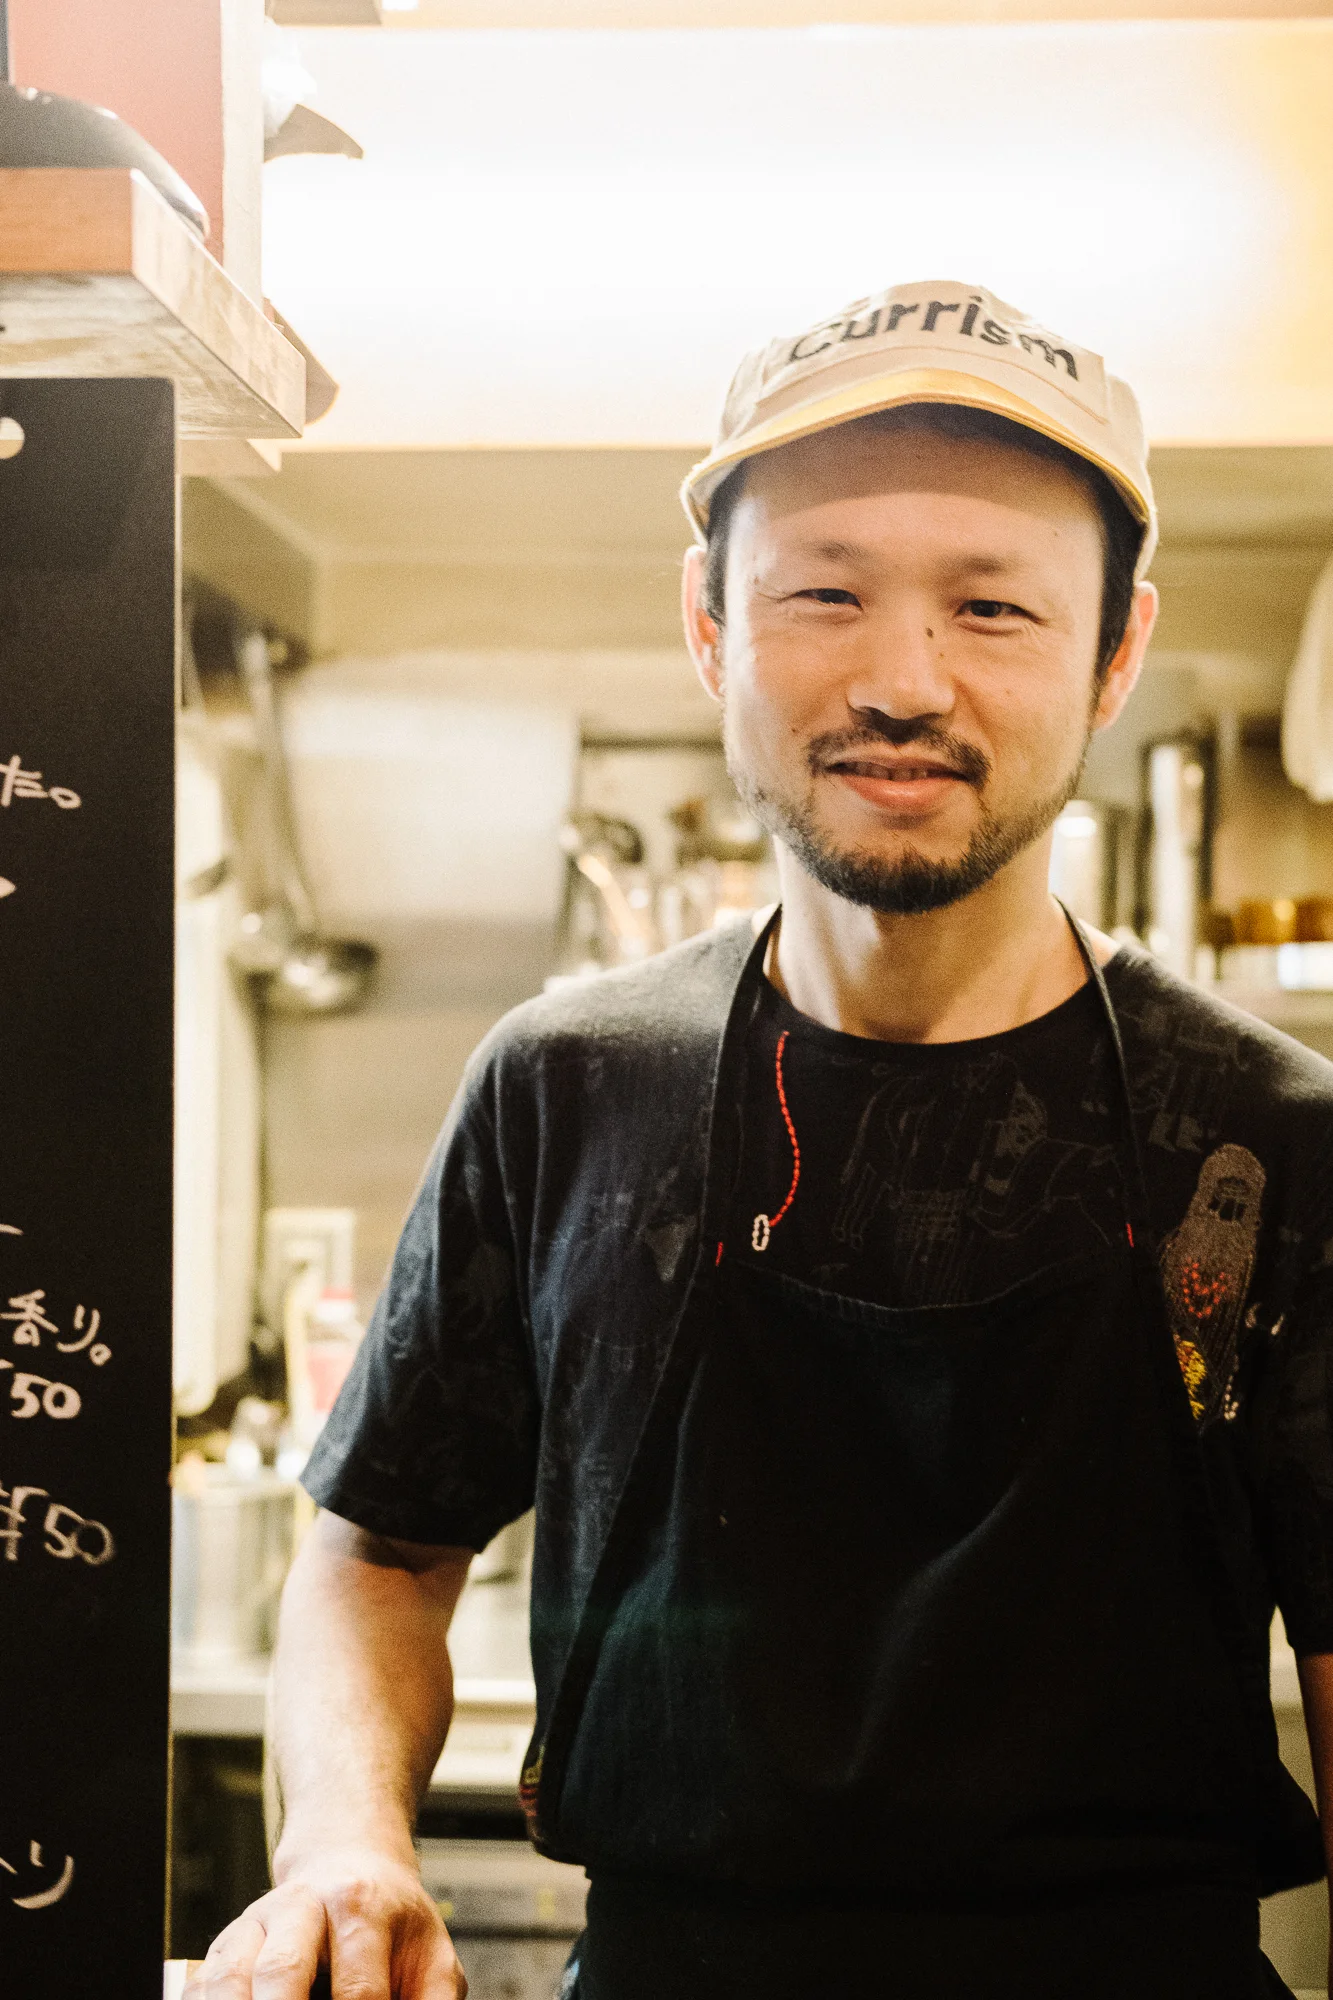 Currism
だ。
香り。
50
50
り